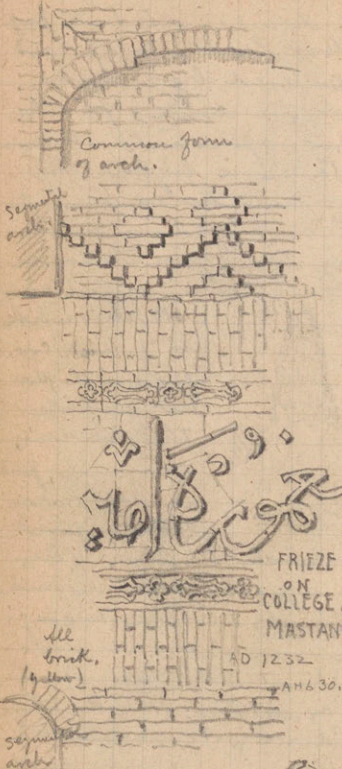 Common form
of arch.
segmental
arch.
FRIEZE
ON
COLLEGE
MASTAN
AD 1232
AH 630.
All
brick.
(yellow)
segmental
arch